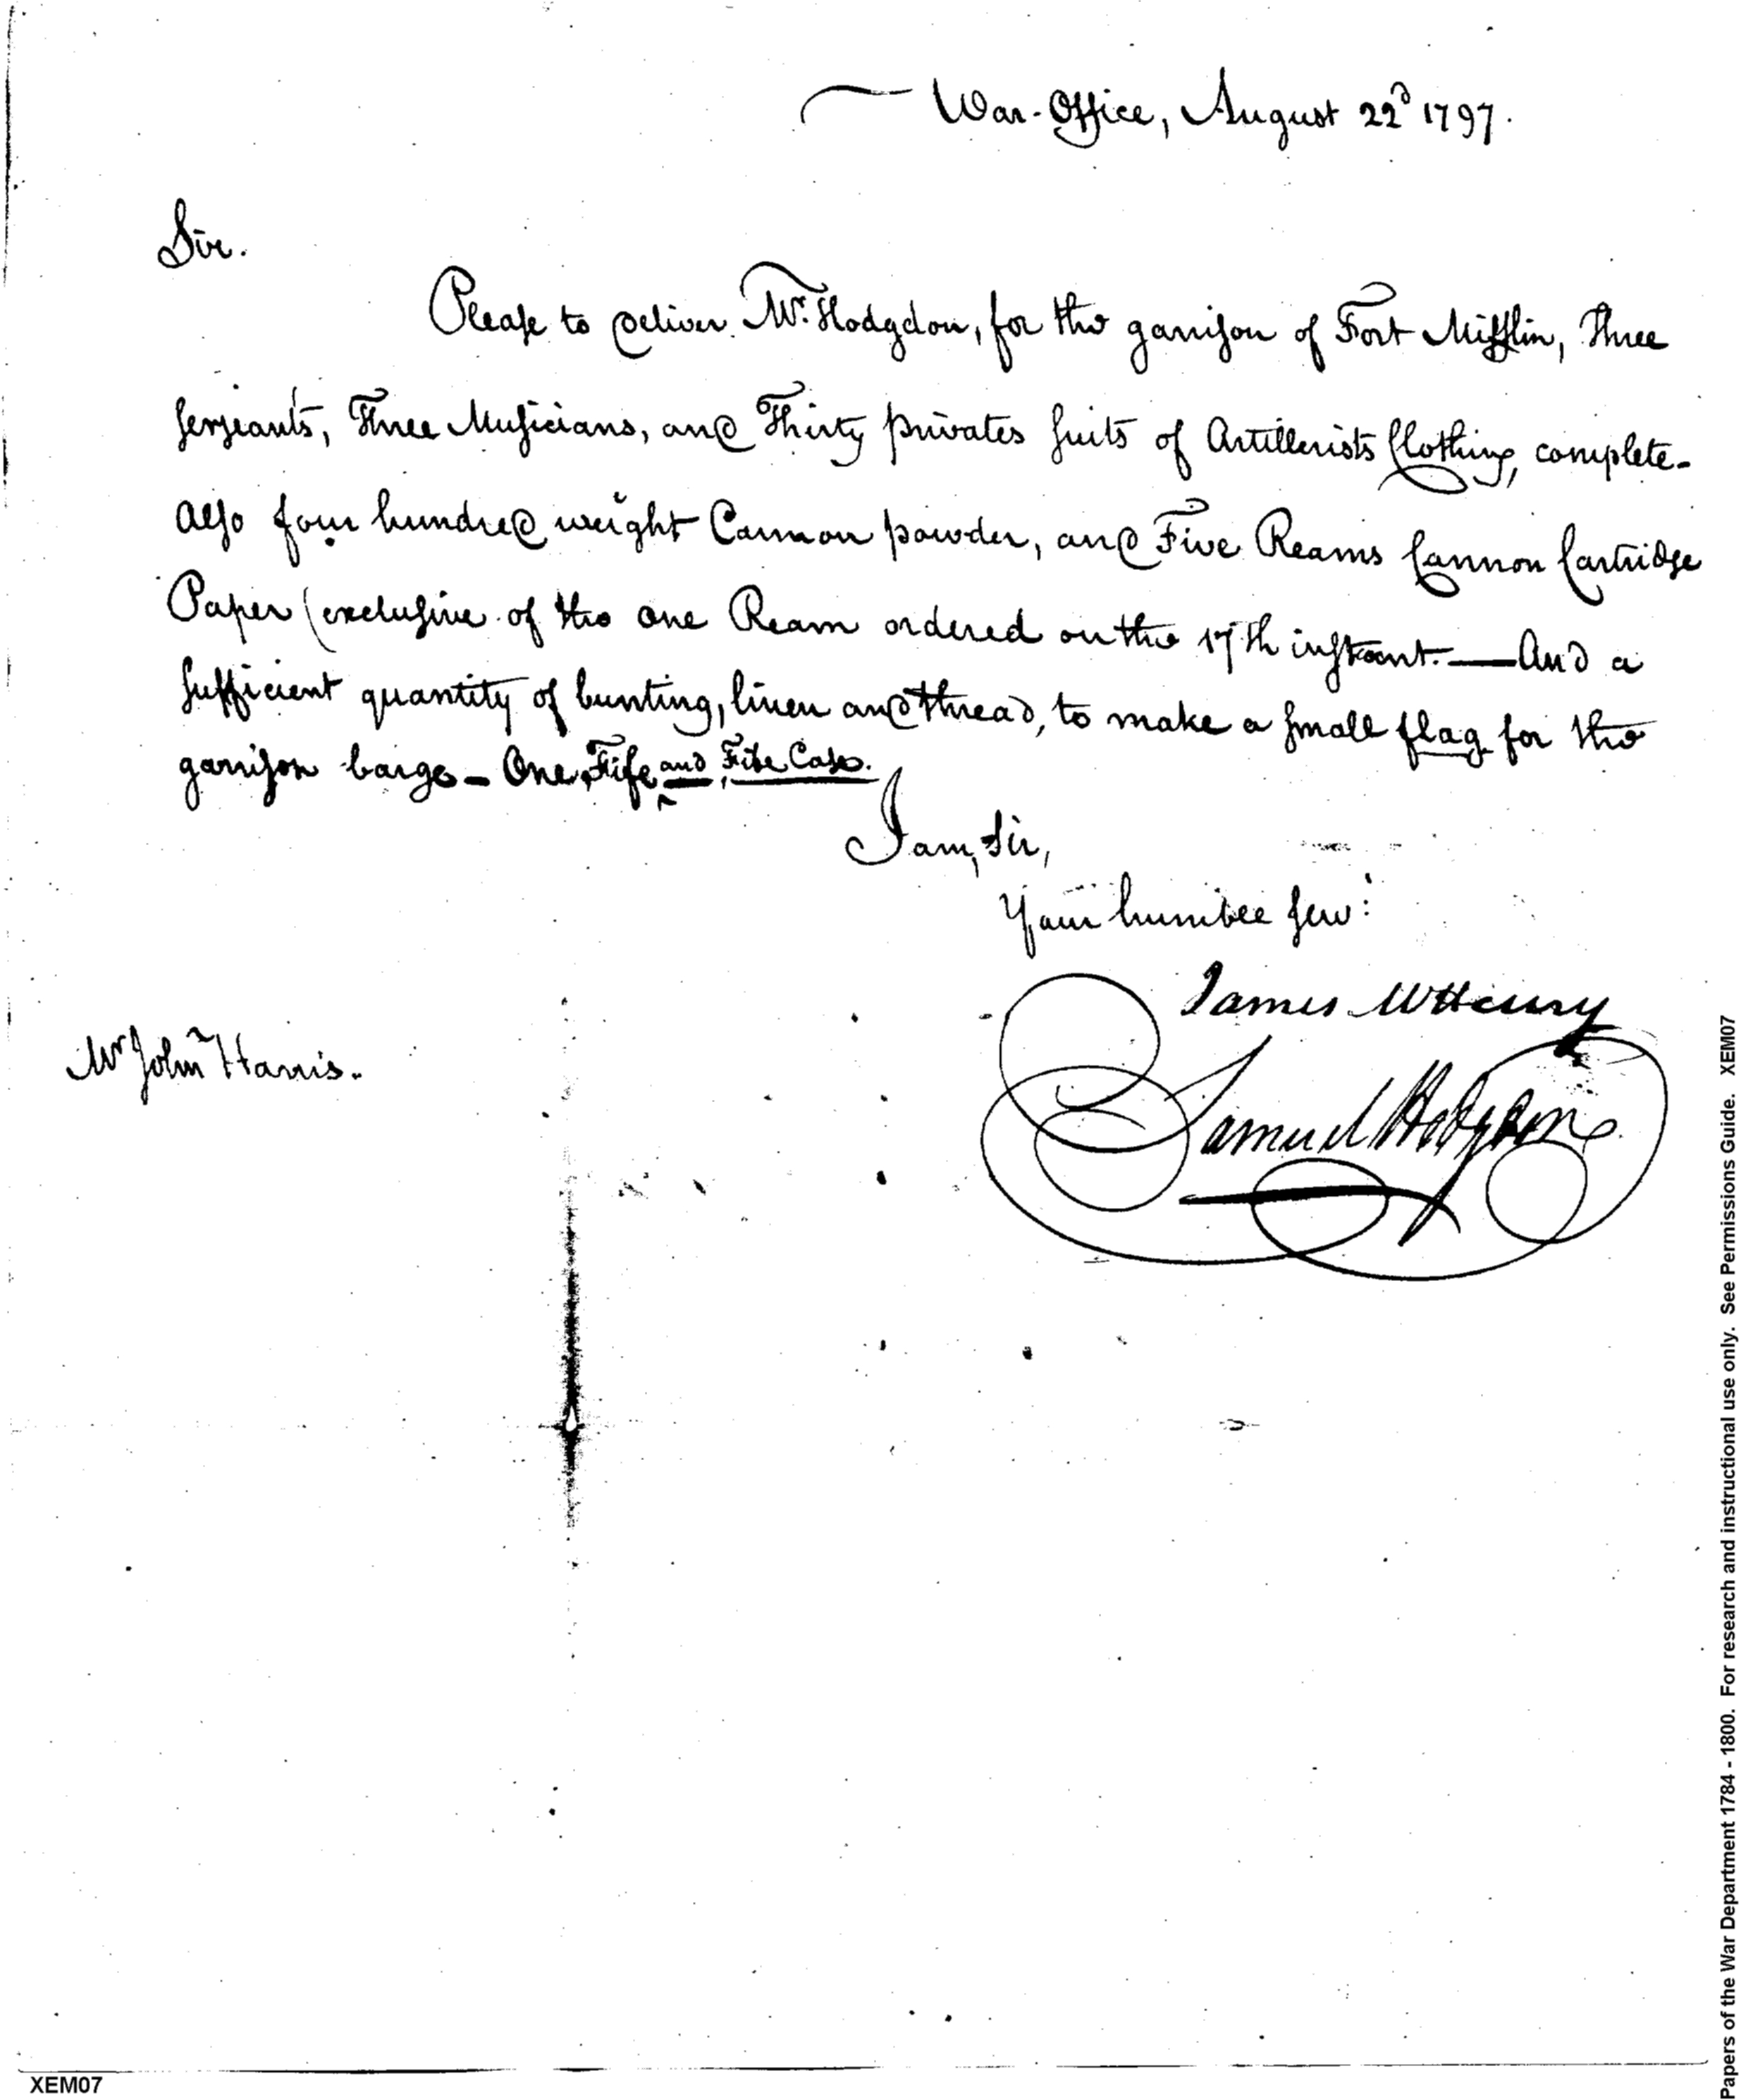 War-Office, August 22d 1797.
Sir.
Please to deliver Mr. Hodgdon, for the garrison of Fort Mifflin, three
serjeants, Three Musicians, and Thirty privates suits of Artillerists Clothing, complete-
also four hundred weight Cannon powder, and Five Reams Cannon Cartridge
Paper (exclusive of the one Ream ordered on the 17th instant. — And a
sufficient quantity of bunting, linen and thread, to make a small flag for the
garrison barge - One Fife and Fife Case.
I am, Sir,
Your humble serv:t
James McHenry
Mr John Harris.
Samuel Hodgdon
Papers of the War Department 1784 - 1800. For research and instructional use only. See Permissions Guide. XEM07
XEM07